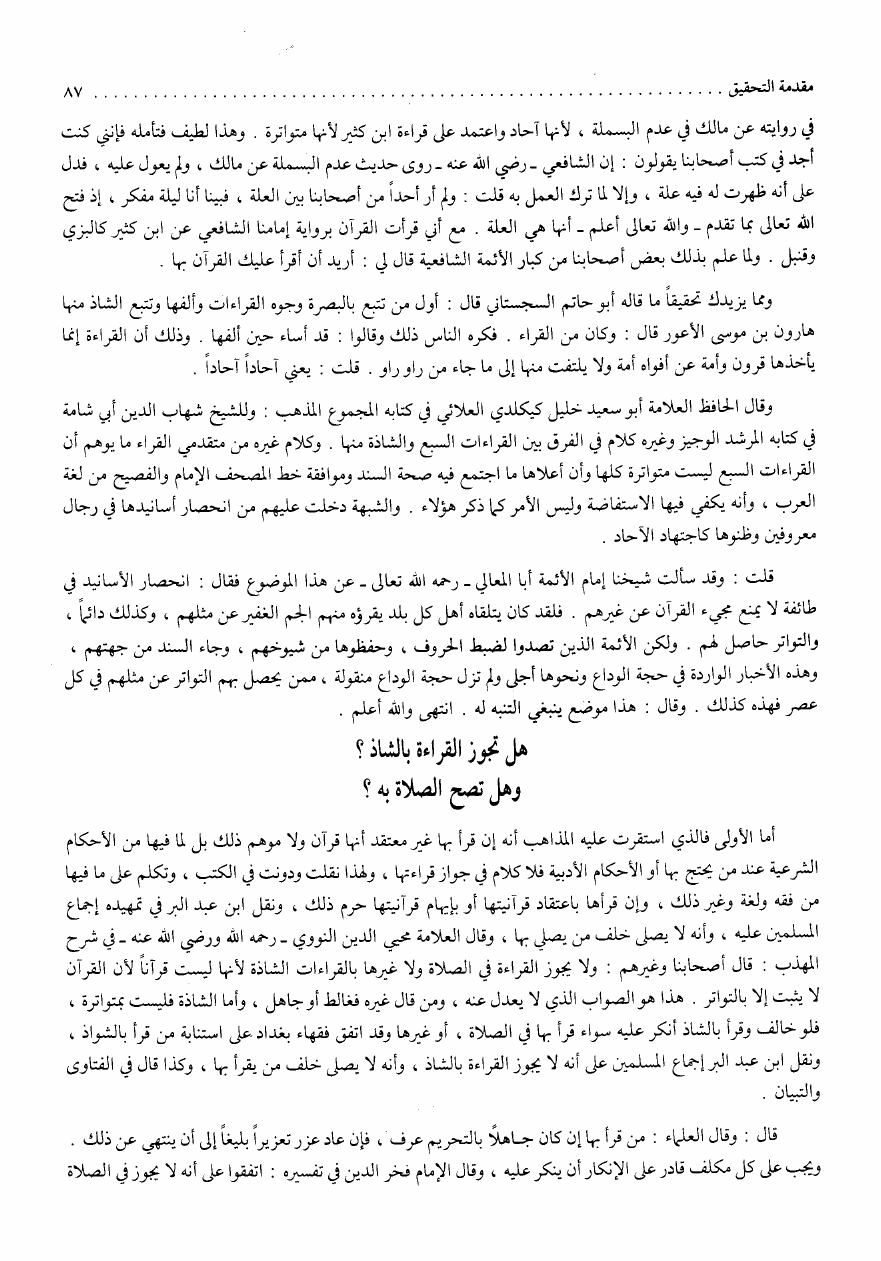 مقدمة التحقيق ............................................................... ٨٧
في روايته عن مالك في عدم البسملة ، لأنها آحاد واعتمد على قراءة ابن كثير لأنها متواترة . وهذا لطيف فتأمله فإنني كنت
أجد في كتب أصحابنا يقولون : إن الشافعي ـ رضي الله عنه ـ روى حديث عدم البسملة عن مالك ، ولم يعول عليه ، فدل
على أنه ظهرت له فيه علة ، وإلا لما ترك العمل به قلت : ولم أر أحداً من أصحابنا بين العلة ، فبينا أنا ليلة مفكر ، إذ فتح
الله تعالى بما تقدم ـ والله تعالى أعلم ـ أنها هي العلة . مع أني قرأت القرآن برواية إمامنا الشافعي عن ابن كثير كالبزي
وقنبل . ولما علم بذلك بعض أصحابنا من كبار الأئمة الشافعية قال لي : أريد أن أقرأ عليك القرآن بها .
ومما يزيدك تحقيقاً ما قاله أبو حاتم السجستاني قال : أول من تتبع بالبصرة وجوه القراءات وألفها وتتبع الشاذ منها
هارون بن موسى الأعور قال : وكان من القراء . فكره الناس ذلك وقالوا : قد أساء حين ألفها . وذلك أن القراءة إنما
يأخذها قرون وأمة عن أفواه أمة ولا يلتفت منها إلى ما جاء من راو راو . قلت : يعني آحاداً آحاداً .
وقال الحافظ العلامة أبو سعيد خليل كيكلدي العلائي في كتابه المجموع المذهب : وللشيخ شهاب الدين أبي شامة
في كتابه المرشد الوجيز وغيره كلام في الفرق بين القراءات السبع والشاذة منها . وكلام غيره من متقدمي القراء ما يوهم أن
القراءات السبع ليست متواترة كلها وأن أعلاها ما اجتمع فيه صحة السند وموافقة خط المصحف الإمام والفصيح من لغة
العرب ، وأنه يكفي فيها الاستفاضة وليس الأمر كما ذكر هؤلاء . والشبهة دخلت عليهم من انحصار أسانيدها في رجال
معروفين وظنوها كاجتهاد الآحاد .
قلت : وقد سألت شيخنا إمام الأئمة أبا المعالي ـ رحمه الله تعالى ـ عن هذا الموضوع فقال : انحصار الأسانيد في
طائفة لا يمنع مجيء القرآن عن غيرهم . فلقد كان يتلقاه أهل كل بلد يقرؤه منهم الجم الغفير عن مثلهم ، وكذلك دائماً ،
والتواتر حاصل لهم . ولكن الأئمة الذين تصدوا لضبط الحروف ، وحفظوها من شيوخهم ، وجاء السند من جهتهم ،
وهذه الأخبار الواردة في حجة الوداع ونحوها أجلى ولم تزل حجة الوداع منقولة ، ممن يحصل بهم التواتر عن مثلهم في كل
عصر فهذه كذلك . وقال : هذا موضع ينبغي التنبه له . انتهى والله أعلم .
هل تجوز القراءة بالشاذ ؟
وهل تصح الصلاة به ؟
أما الأولى فالذي استقرت عليه المذاهب أنه إن قرأ بها غير معتقد أنها قرآن ولا موهم ذلك بل لما فيها من الأحكام
الشرعية عند من يحتج بها أو الأحكام الأدبية فلا كلام في جواز قراءتها ، ولهذا نقلت ودونت في الكتب ، وتكلم على ما فيها
من فقه ولغة وغير ذلك ، وإن قرأها باعتقاد قرآنيتها أو بإيهام قرآنيتها حرم ذلك ، ونقل ابن عبد البر في تمهيده إجماع
المسلمين عليه ، وأنه لا يصلى خلف من يصلي بها ، وقال العلامة محيي الدين النووي ـ رحمه الله ورضي الله عنه ـ في شرح
المهذب : قال أصحابنا وغيرهم : ولا يجوز القراءة في الصلاة ولا غيرها بالقراءات الشاذة لأنها ليست قرآناً لأن القرآن
لا يثبت إلا بالتواتر . هذا هو الصواب الذي لا يعدل عنه ، ومن قال غيره فغالط أو جاهل ، وأما الشاذة فليست بمتواترة ،
فلو خالف وقرأ بالشاذ أنكر عليه سواء قرأ بها في الصلاة ، أو غيرها وقد اتفق فقهاء بغداد على استتابة من قرأ بالشواذ ،
ونقل ابن عبد البر إجماع المسلمين على أنه لا يجوز القراءة بالشاذ ، وأنه لا يصلى خلف من يقرأ بها ، وكذا قال في الفتاوى
والتبيان .
قال : وقال العلماء : من قرأ بها إن كان جاهلاً بالتحريم عرف ، فإن عاد عزر تعزيراً بليغاً إلى أن ينتهي عن ذلك .
ويجب على كل مكلف قادر على الإنكار أن ينكر عليه ، وقال الإمام فخر الدين في تفسيره : اتفقوا على أنه لا يجوز في الصلاة